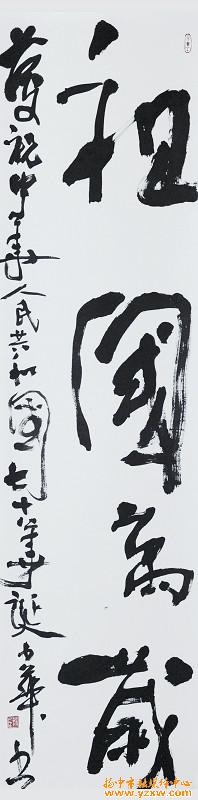 祖國萬歲
慶祝中華人民共和國七十華誕
扬中市融媒体中心
www.yzxw.com